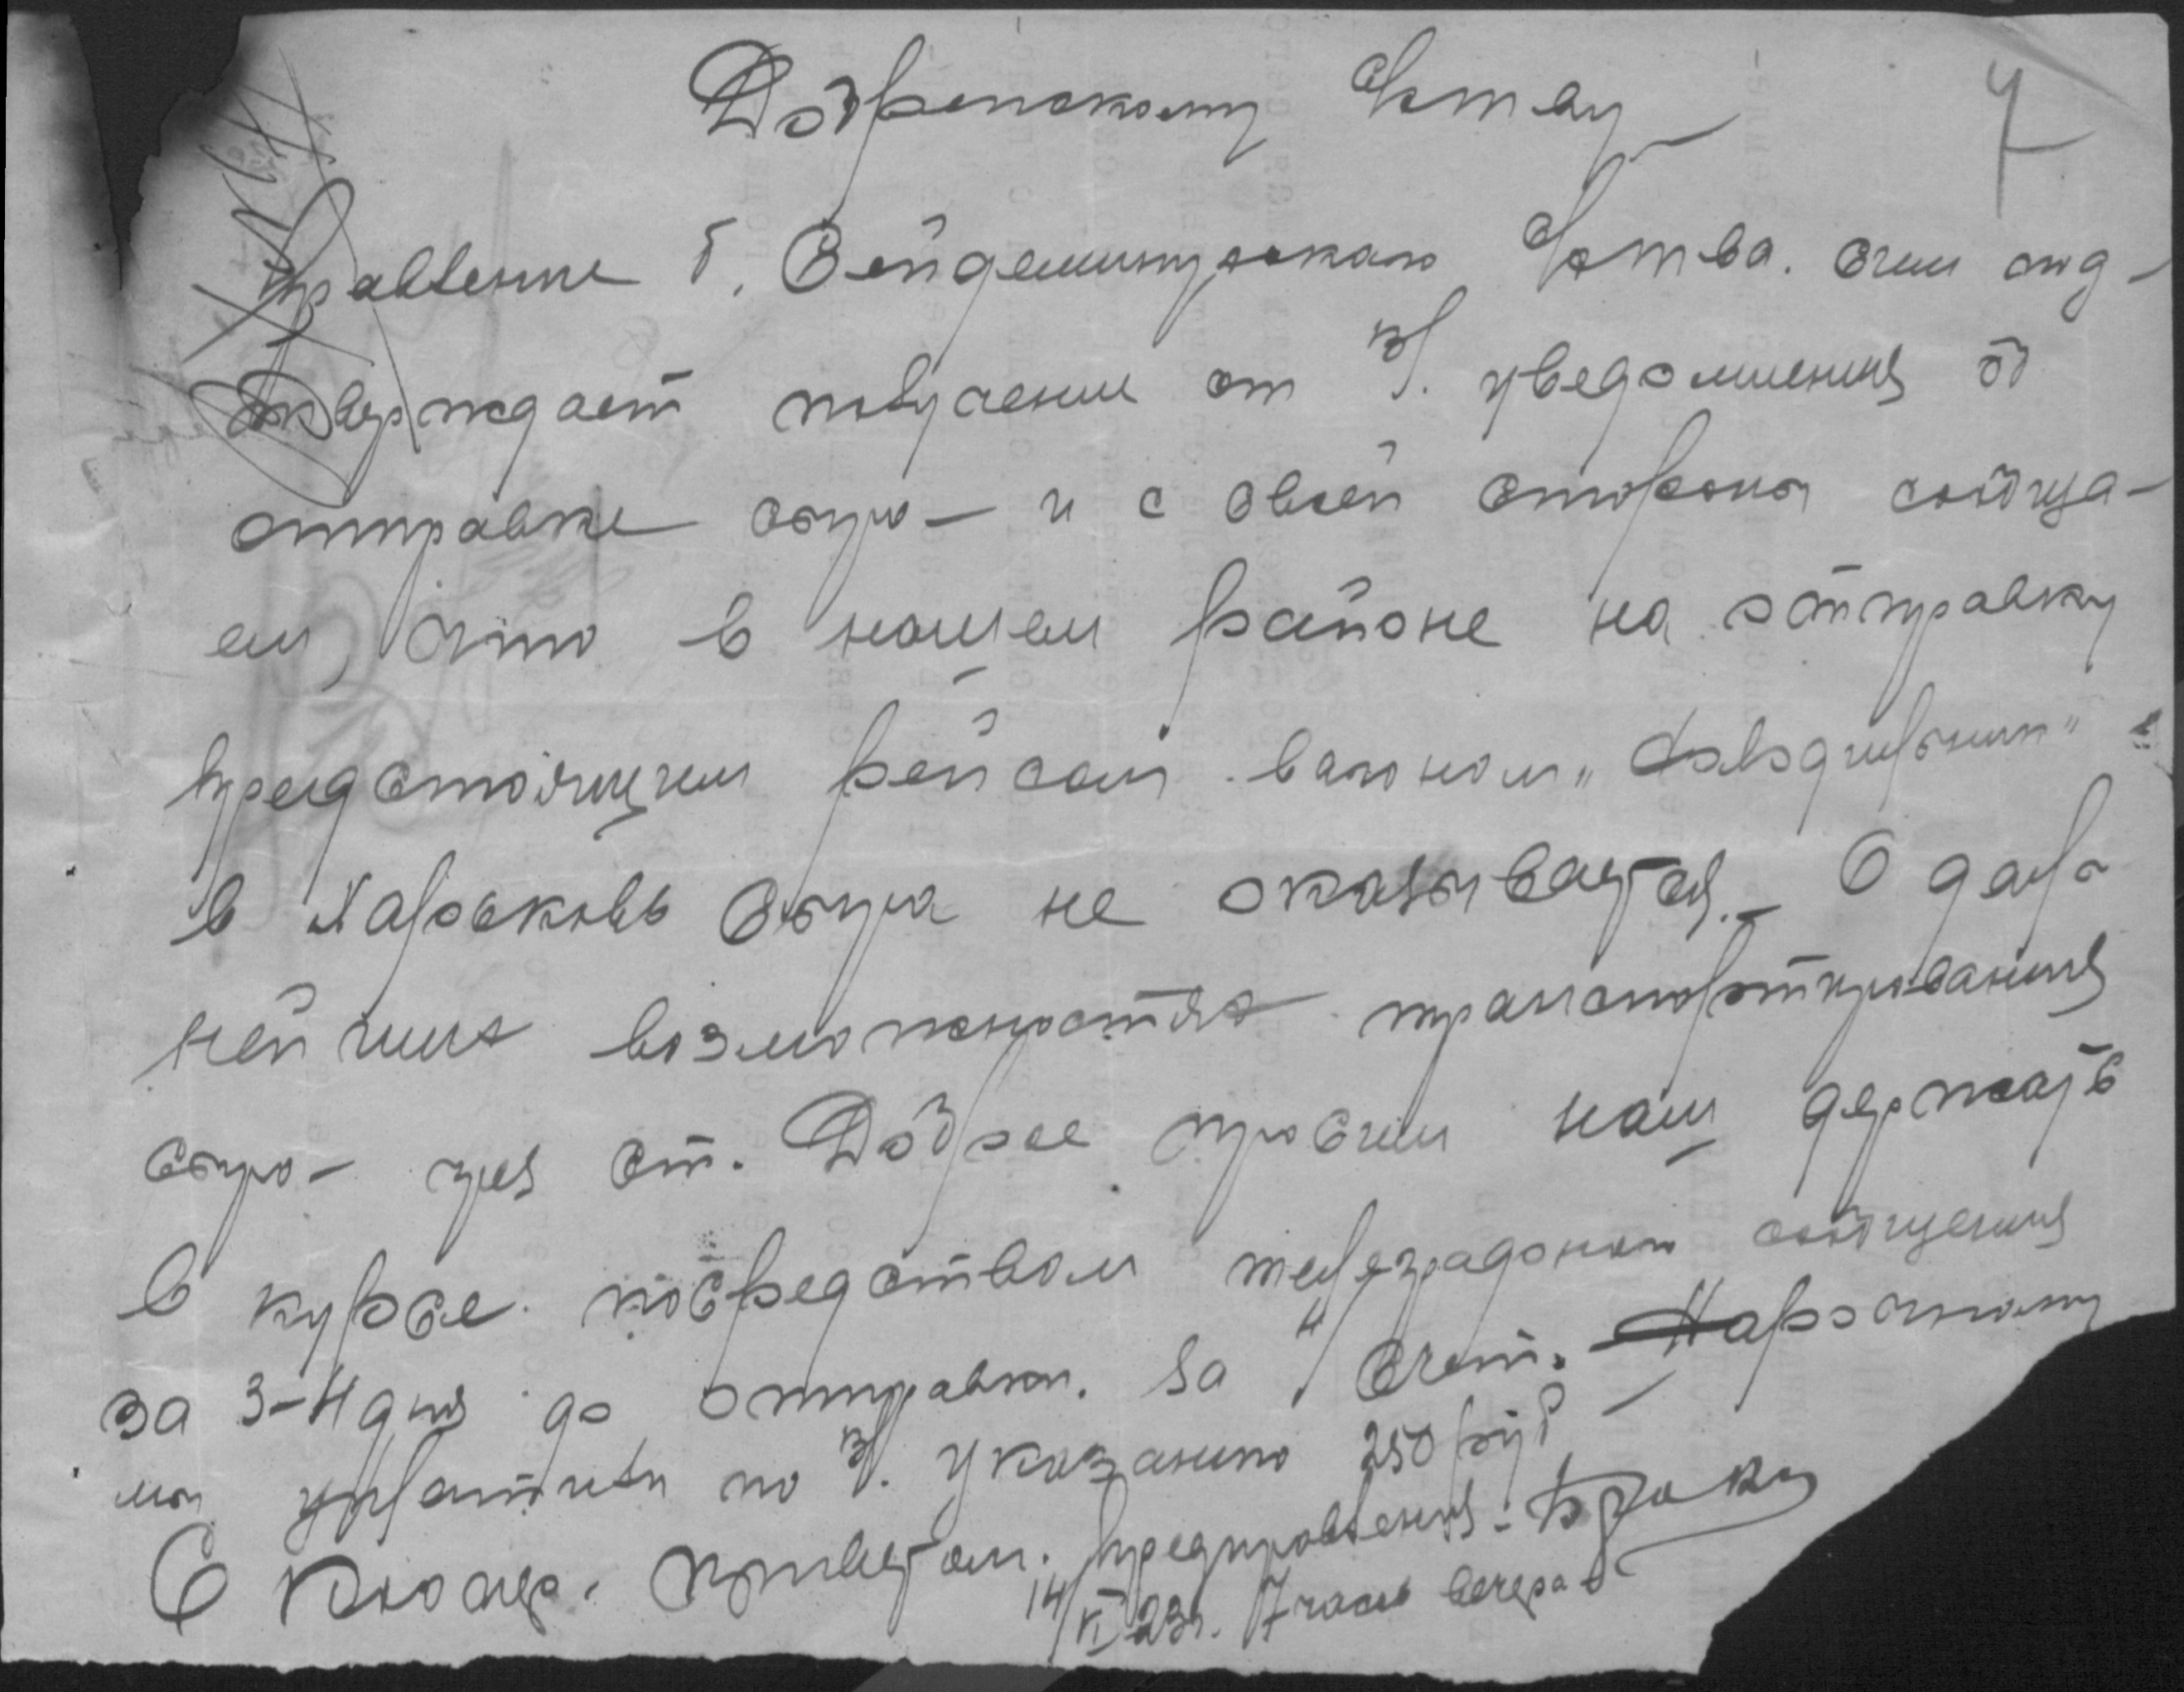 Добренскому О/ттву 7
Правление б. Вейдеминурского О/ттва. сим под-
тверждает получение от В/. уведомления об
отправке сыра - и с своей стороны сообща-
ем, что в нашем районе на отправку
предстоящим рейсом вагоном „Холодильник"
в Харьковъ сыра не оказывается. О даль
нейших возможностях транспортирования
сыра - чрез ст. Доброе просим нас держать
в курсе посредством телеграфного сообщения
за 3-4 дня до отправки. за н/ счет. Нарочному
мы уплатили по В/. указанию 250 руб -
С Коопер. приветом. Предправления:
14/XI 23г. 7 часов вечера